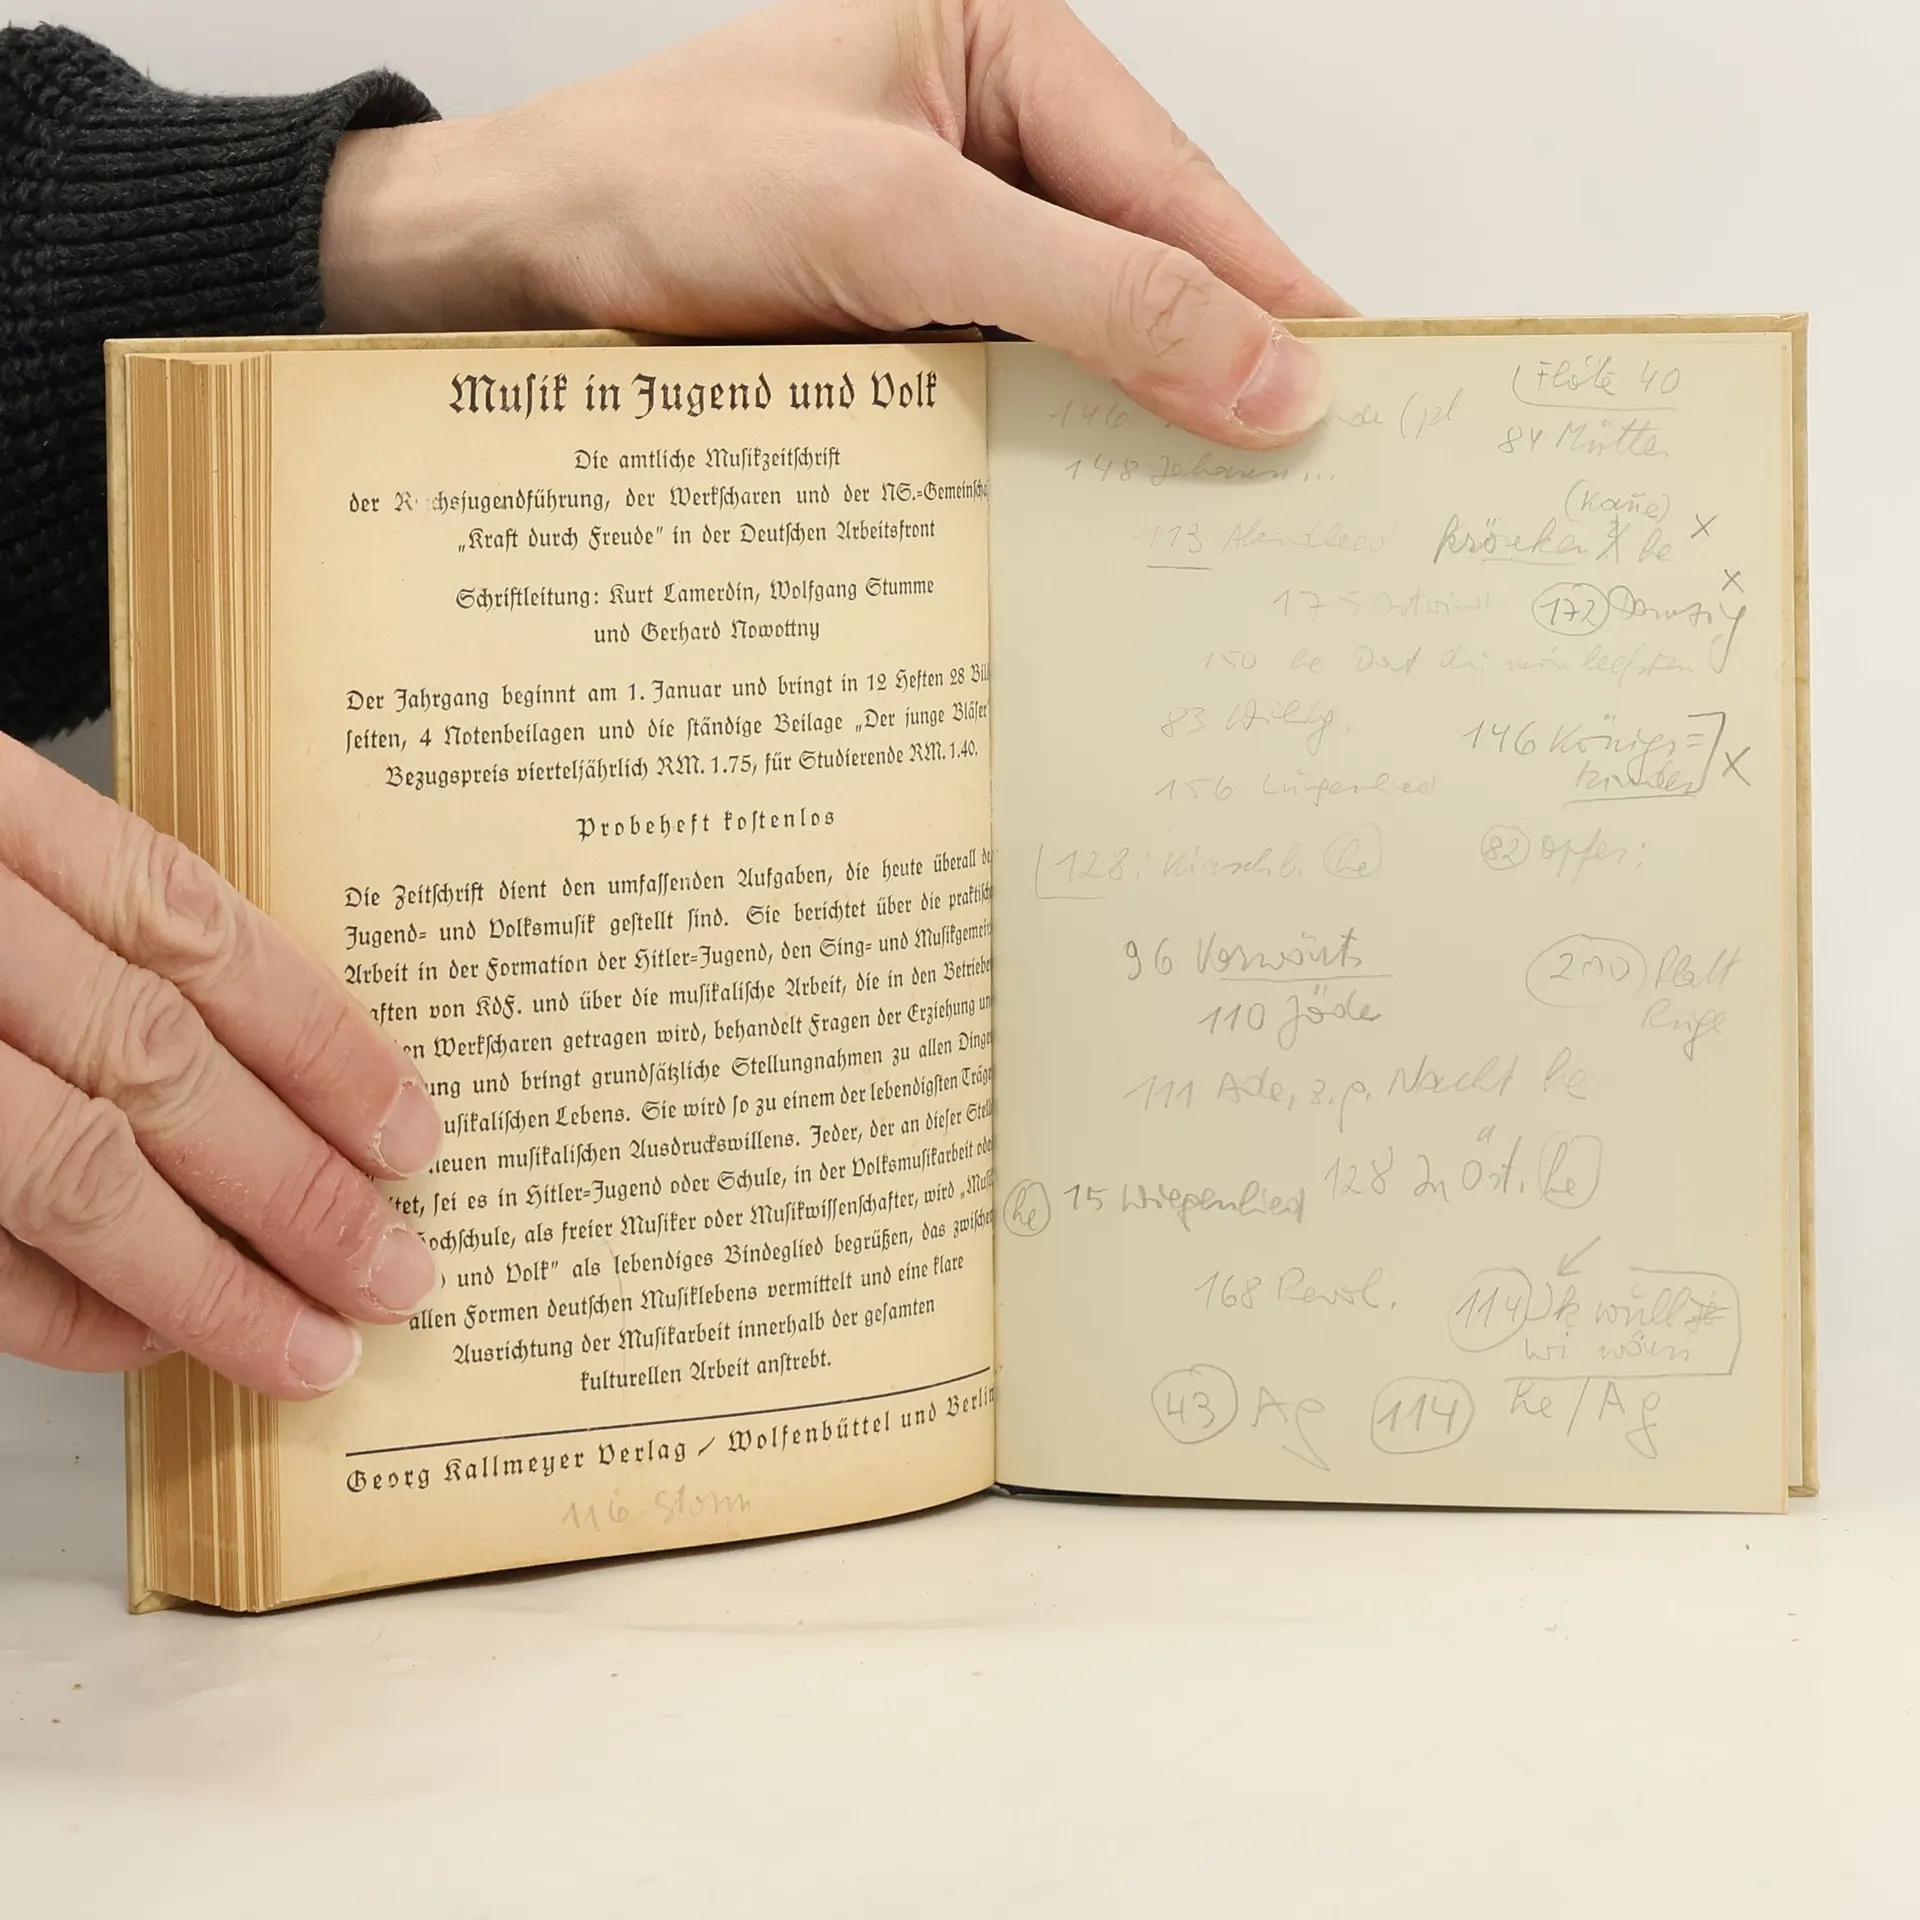 Musik in Jugend und Volk
Die amtliche Musikzeitschrift
der R chsjugendführung, der Werkscharen und der NS.=Gemeinscha
„Kraft durch Freude” in der Deutschen Arbeitsfront
Schriftleitung: Kurt Lamerdin, Wolfgang Stumme
und Gerhard Nowottny
Der Jahrgang beginnt am 1. Januar und bringt in 12 Heften 28 Bild
seiten, 4 Notenbeilagen und die ständige Beilage „Der junge Bläser”
Bezugspreis vierteljährlich RM. 1.75, für Studierende RM. 1.40.
Probeheft kostenlos
Die Zeitschrift dient den umfassenden Aufgaben, die heute überall de
Jugend= und Volksmusik gestellt sind. Sie berichtet über die praktisch
Arbeit in der Formation der Hitler=Jugend, den Sing= und Musikgemein
aften von KdF. und über die musikalische Arbeit, die in den Betriebe
en Werkscharen getragen wird, behandelt Fragen der Erziehung un
ung und bringt grundsätzliche Stellungnahmen zu allen Dinge
usikalischen Lebens. Sie wird so zu einem der lebendigsten Träge
neuen musikalischen Ausdruckswillens. Jeder, der an dieser Stell
itet, sei es in Hitler=Jugend oder Schule, in der Volksmusikarbeit ode
ochschule, als freier Musiker oder Musikwissenschafter, wird „Musi
und Volk” als lebendiges Bindeglied begrüßen, das zwischen
allen Formen deutschen Musiklebens vermittelt und eine klare
Ausrichtung der Musikarbeit innerhalb der gesamten
kulturellen Arbeit anstrebt.
Georg Kallmeyer Verlag / Wolfenbüttel und Berlin
116 Storm
Flöte 40
146 nde (pl
84 Mütter
148
113 Abendlied
he x
x
175 Ostwind
172 Danzig
150 he Dat du min leefsten
83
146 Königs=
kinder x
156 Lügenlied
128: Kirschb. he
82 Opfer:
96 Vorwärts
200 Platt
110 Jöde
111 Ade, z. g. Nacht he
128 In Öst. he
he 15 Wiegenlied
168 Revol.
114 Ik wull
wi wörn
43 Ag
114 he / Ag